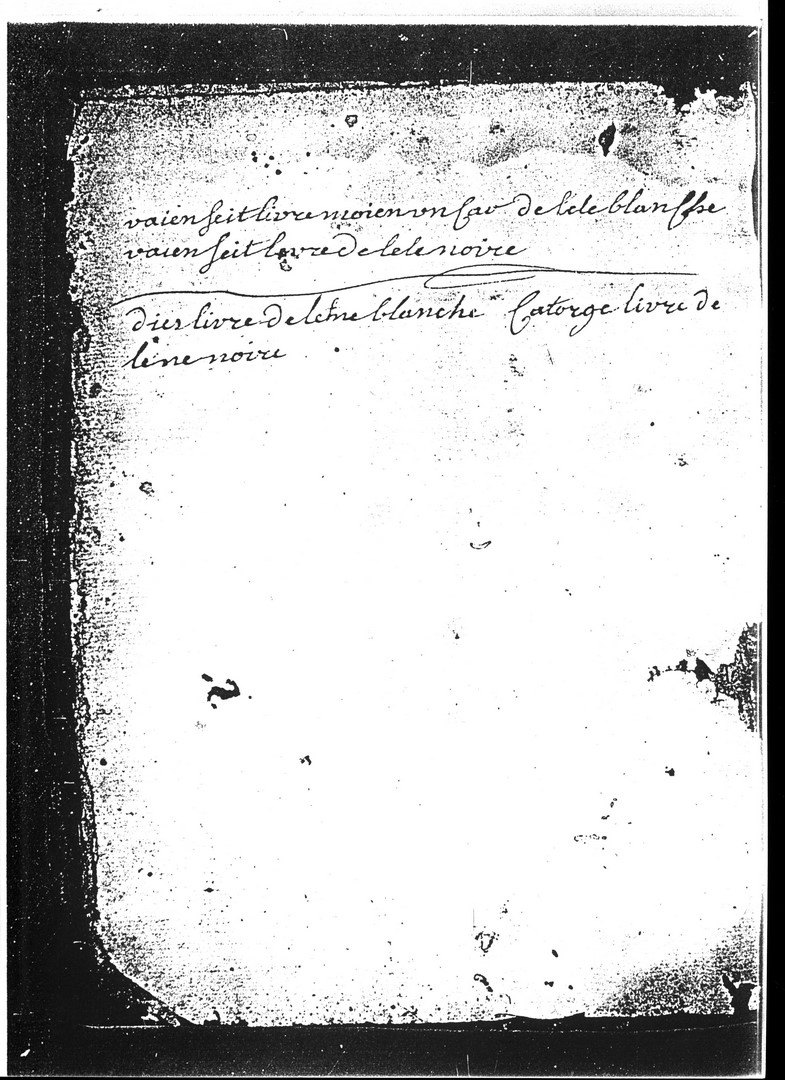 vaien seit livre moien un car de lele blansse
vaien seit livre de lele noire
dies livre de lene blanche Catorge livre de
léne noire